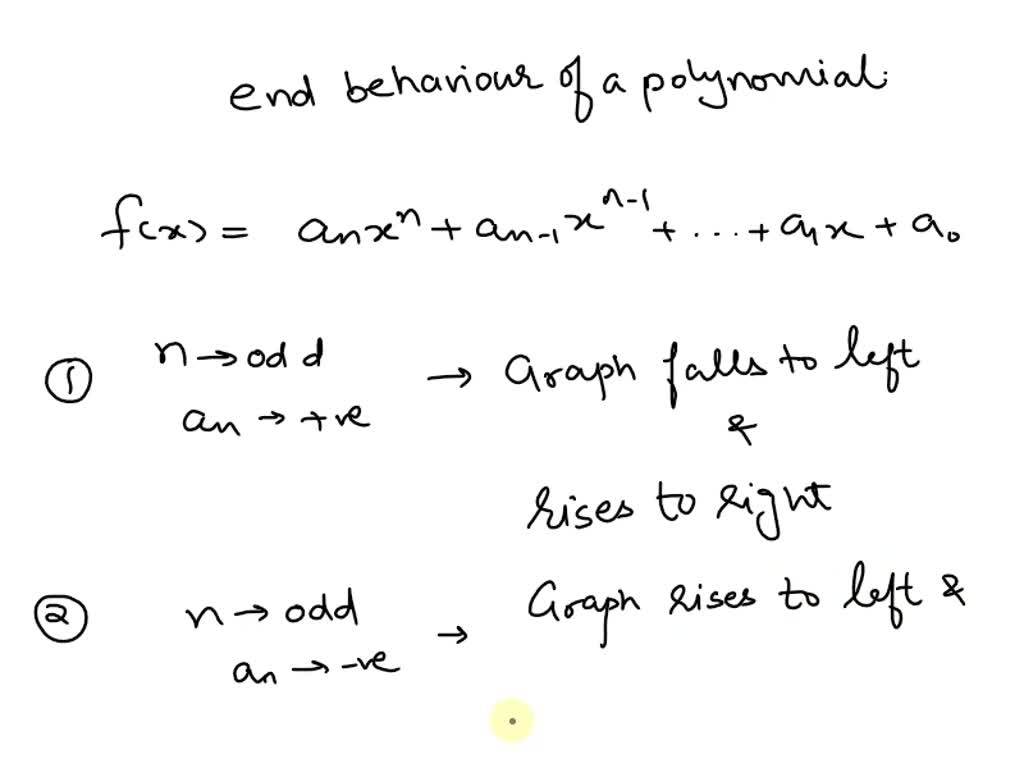 end behaviour of a polynomial.
f(x) = aₙxⁿ + aₙ₋₁xⁿ⁻¹ + ... + a₁x + a₀
① n → odd → Graph falls to left
aₙ → +ve &
rises to right
② n → odd → Graph rises to left &
aₙ → -ve